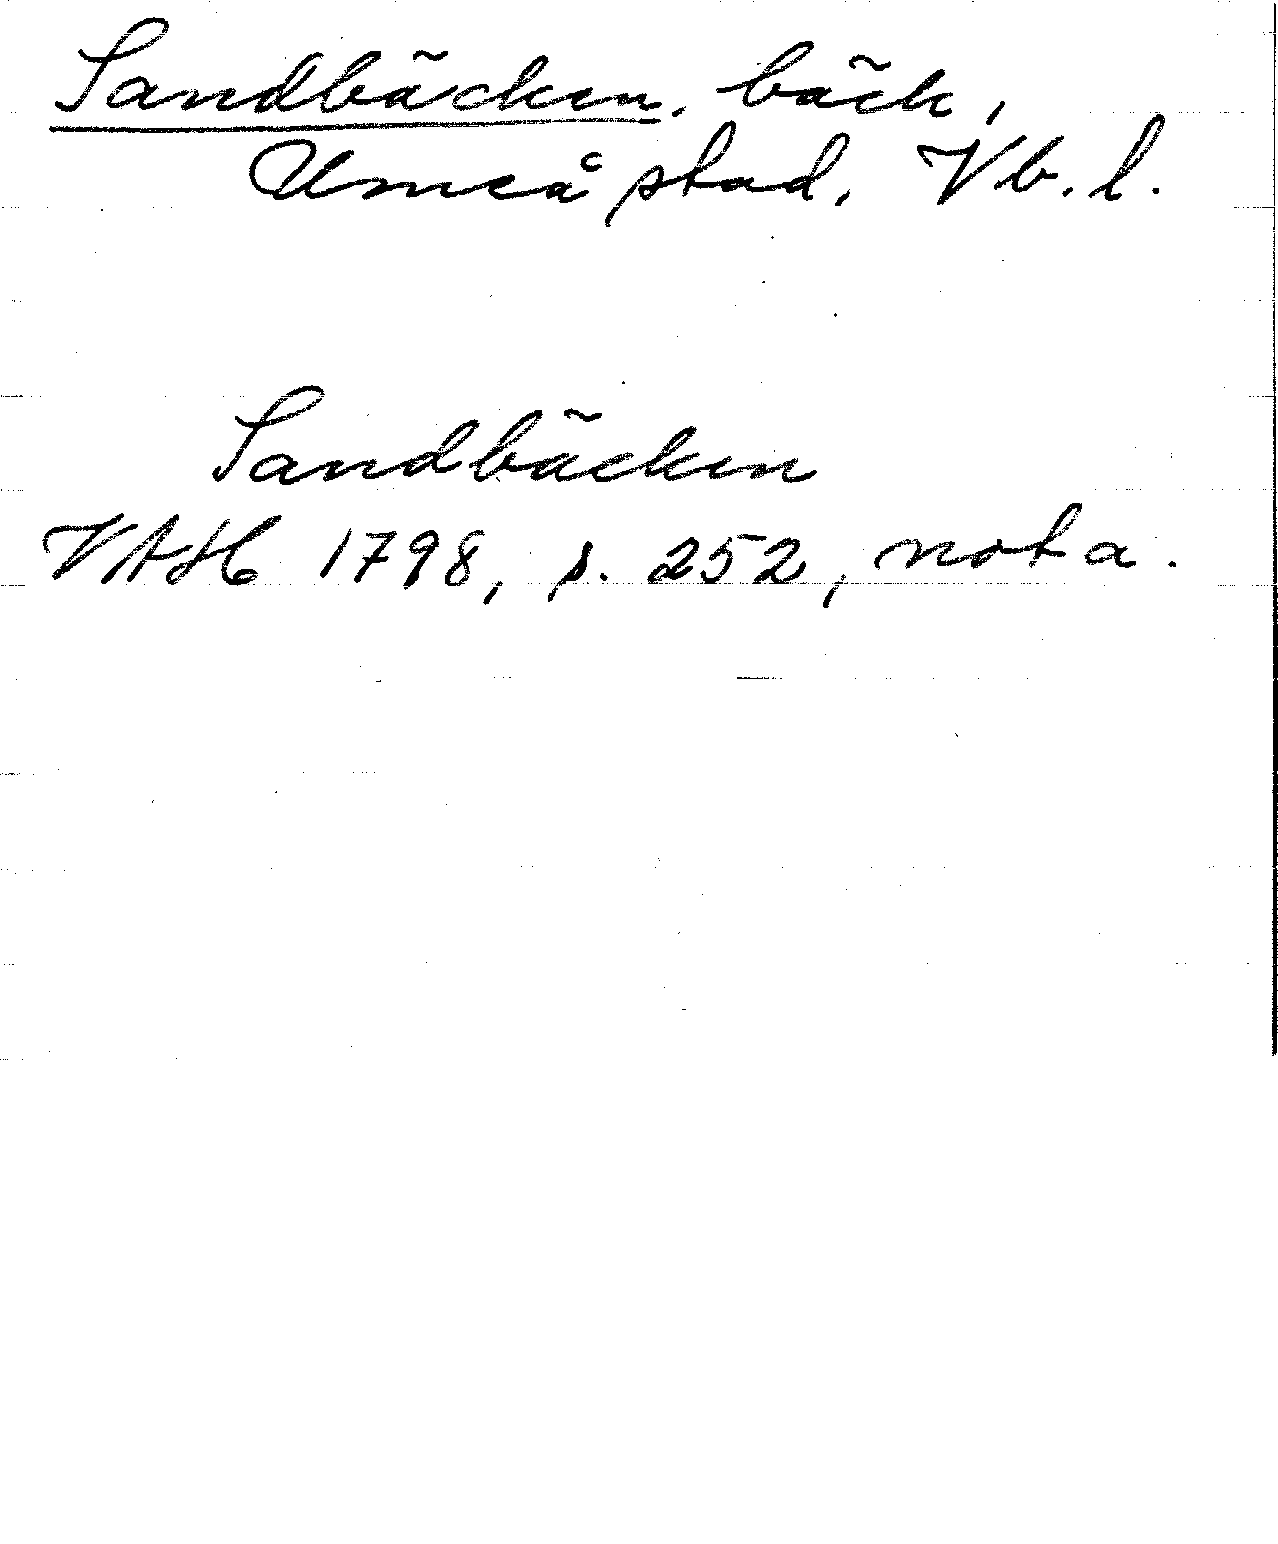 Sandbäcken, bäck,
Umeå stad, Vb. l.
Sandbäcken
VAH 1798, s. 252, nota.